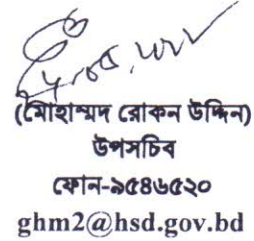 (মোহাম্মদ রোকন উদ্দিন)
উপসচিব
ফোন-৯৫৪৬৫২০
ghm2@hsd.gov.bd